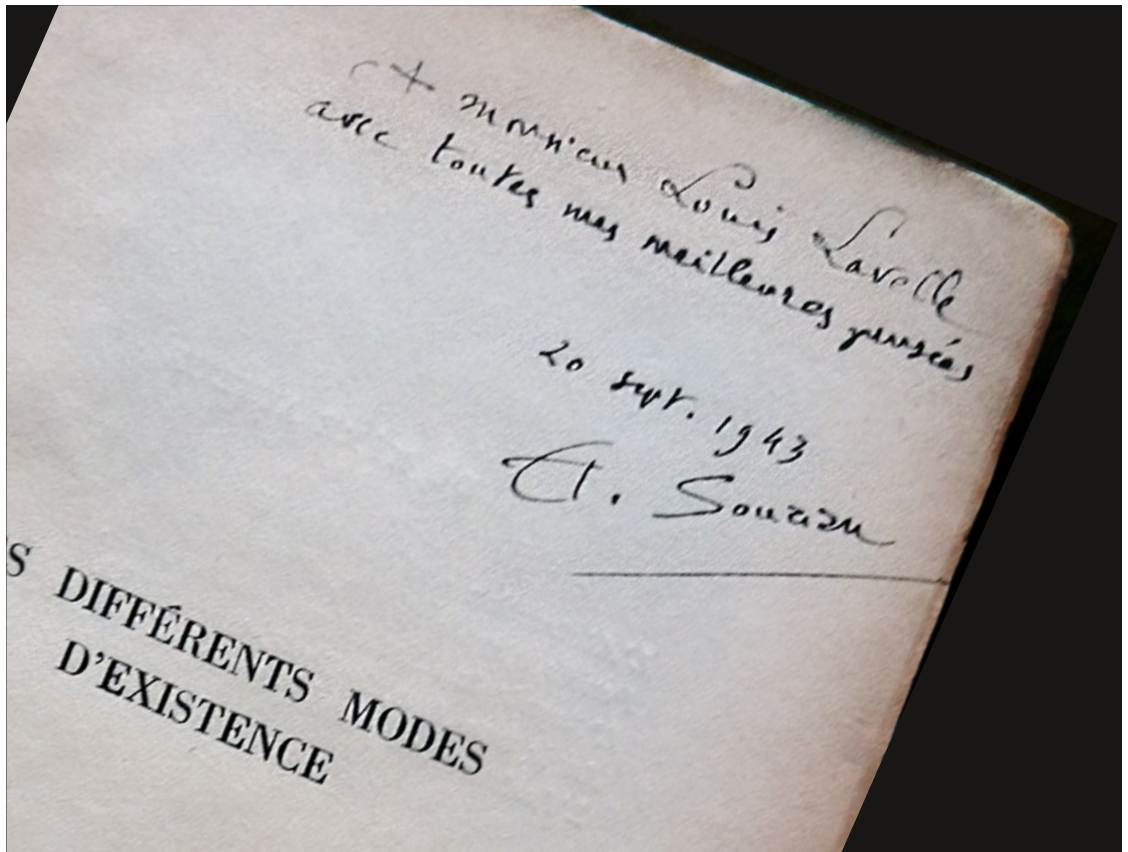 A monsieur Louis Lavelle
avec toutes mes meilleures pensées
20 sept. 1943
Et. Souriau
S DIFFÉRENTS MODES
D'EXISTENCE